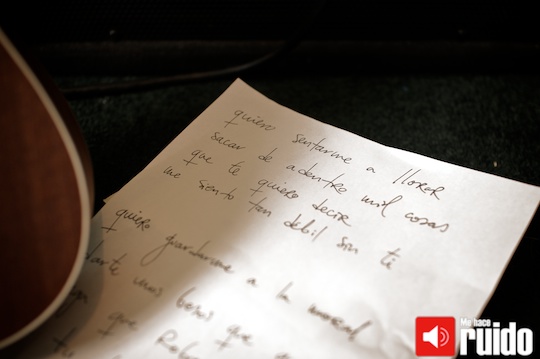 quiero sentarme a llorar
sacar de adentro mil cosas
que te quiero decir
me siento tan debil sin ti
quiero guardarme a la moral
darte unos besos que
que
Me hace
ruido